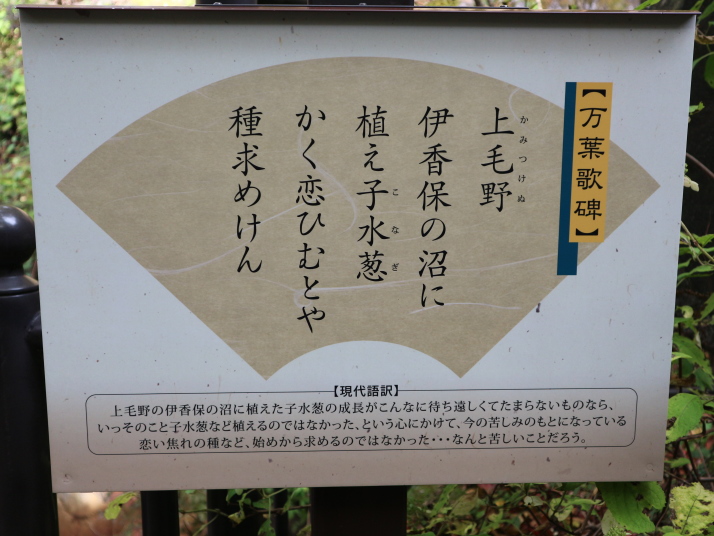 【万葉歌碑】
上毛野
かみつけぬ
伊香保の沼に
植え子水葱
こなぎ
かく恋ひむとや
種求めけん
【現代語訳】
上毛野の伊香保の沼に植えた子水葱の成長がこんなに待ち遠しくてたまらないものなら、
いっそのこと子水葱など植えるのではなかった、という心にかけて、今の苦しみのもとになっている
恋い焦れの種など、始めから求めるのではなかった・・・なんと苦しいことだろう。